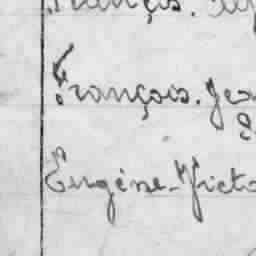 François.
François. Je
Eugène-Victo